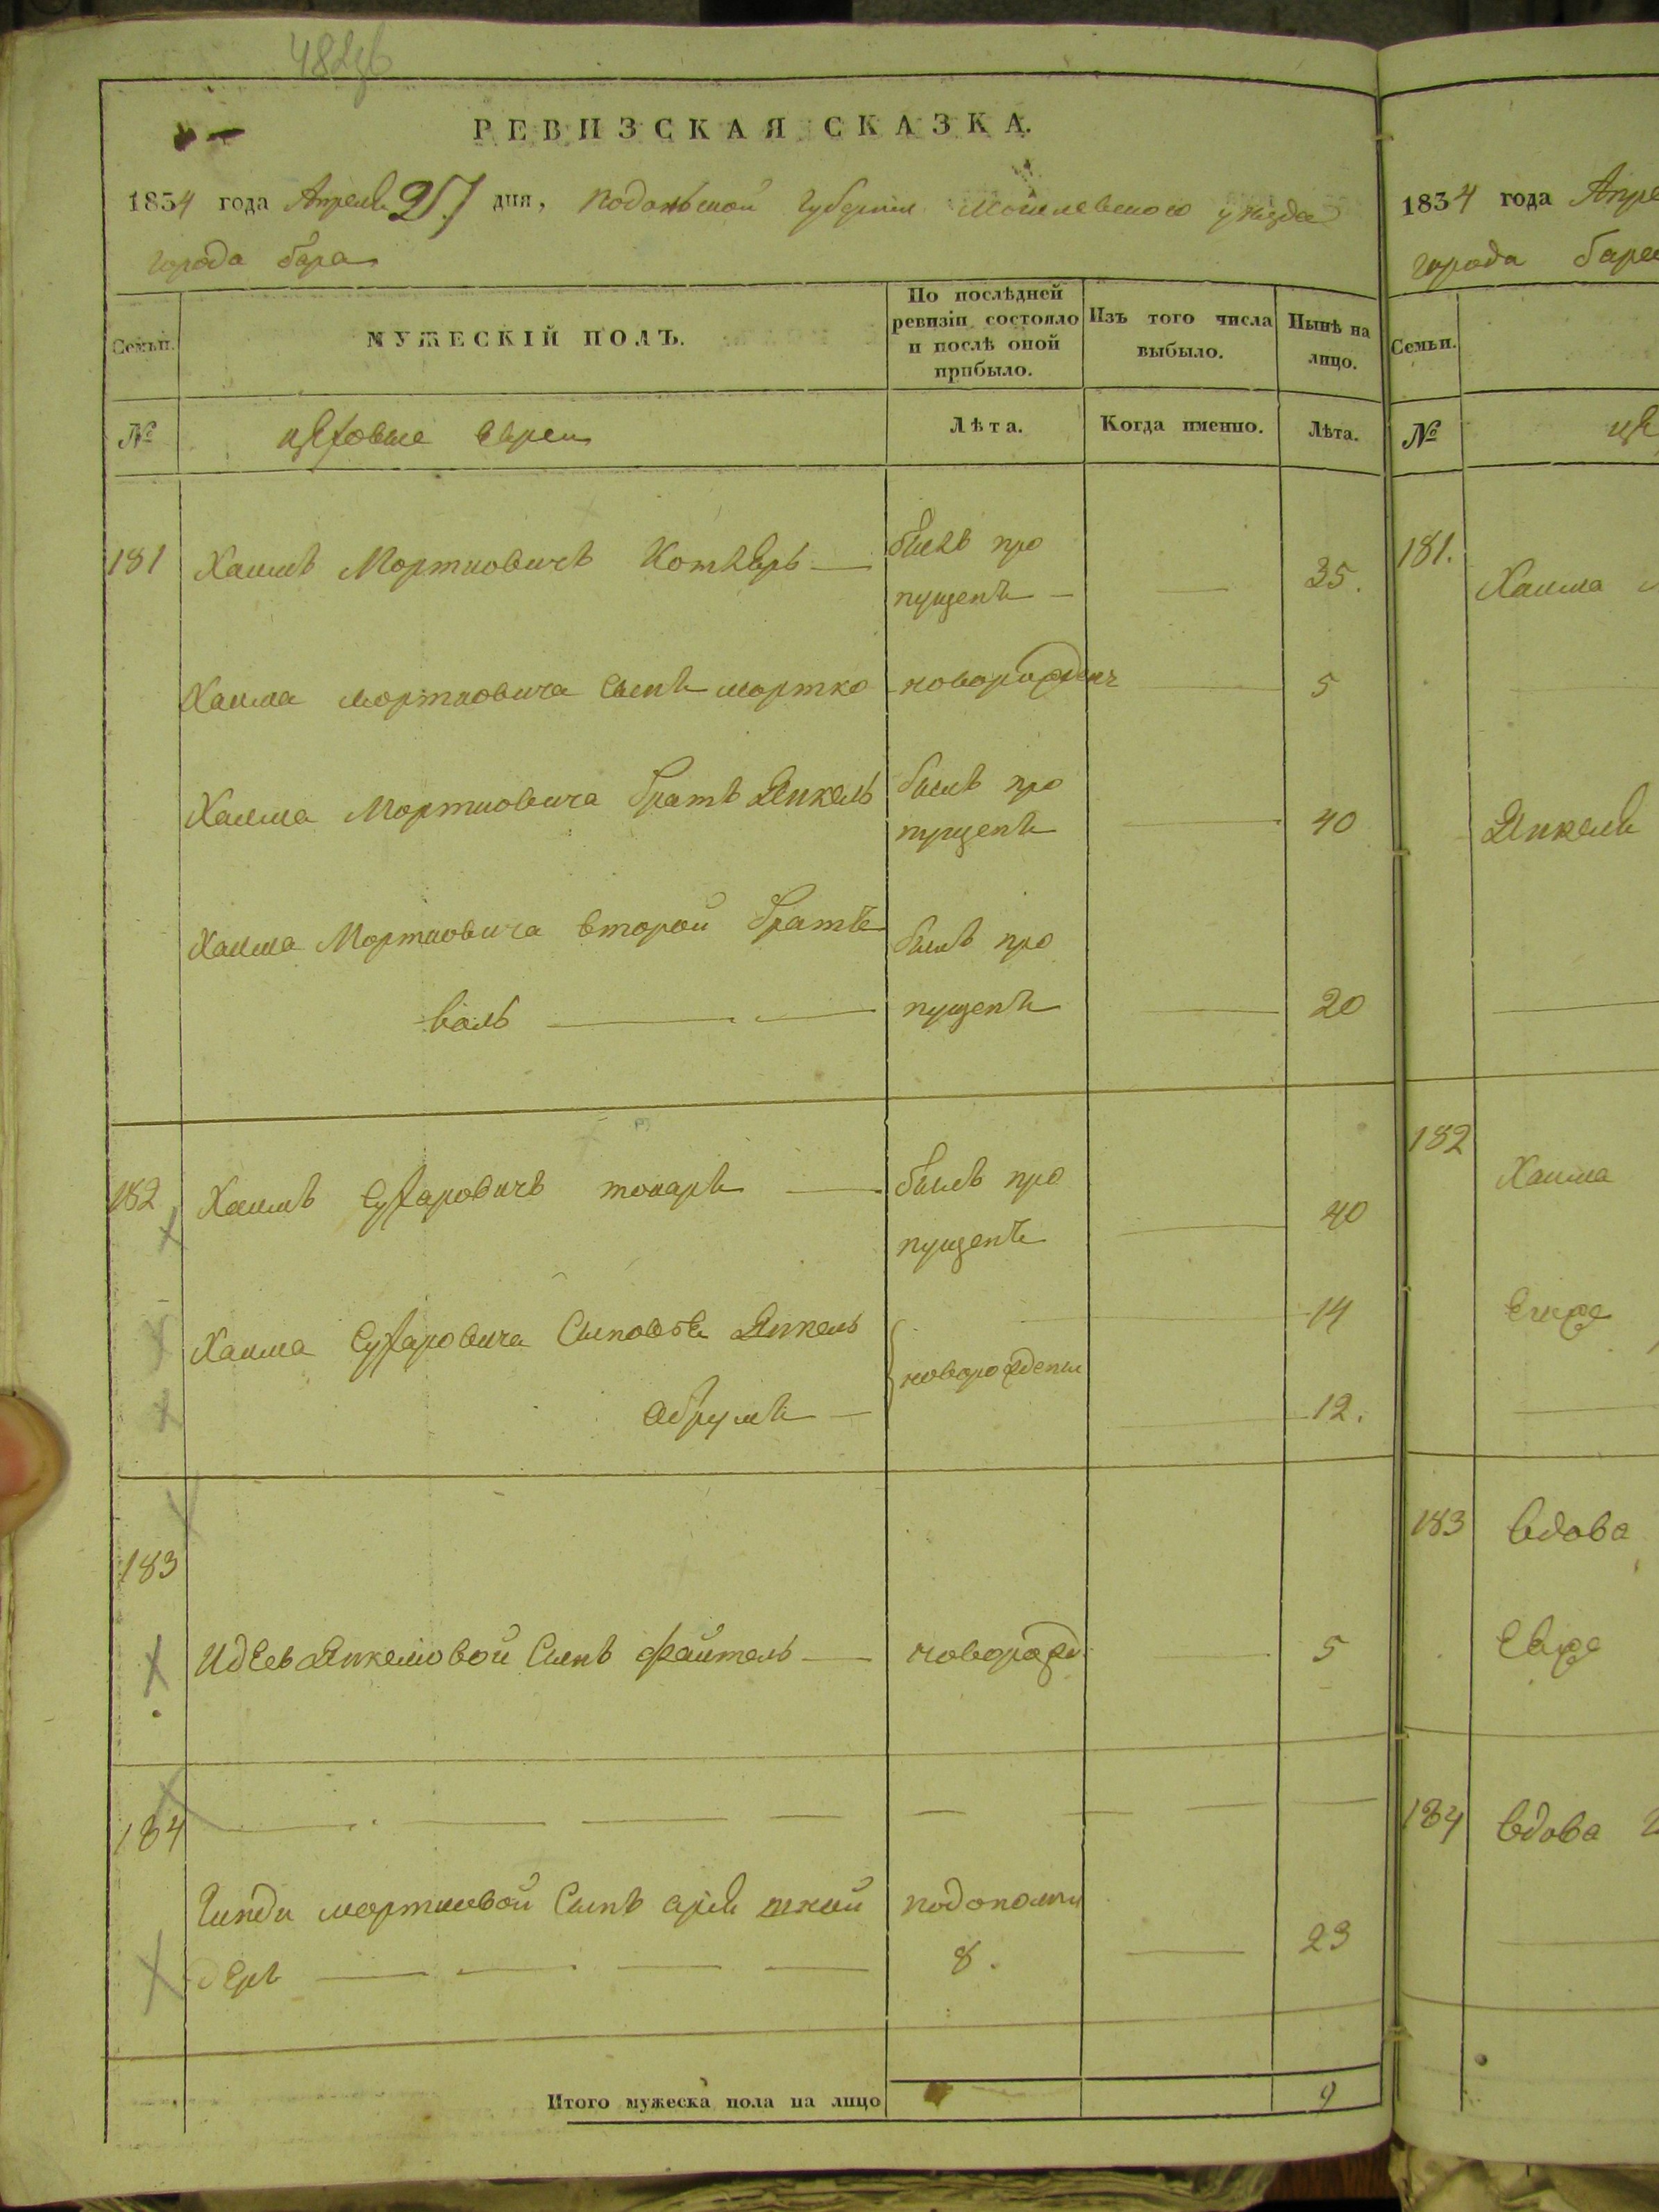 РЕВИЗСКАЯ СКАЗКА.
1834 года Апреля 27 дня, Подольской губернии Могилевского уезда
города бара
Семьи.
МУЖЕСКІЙ ПОЛЪ.
По послѣдней ревизіи состояло и послѣ оной прибыло.
Изъ того числа выбыло.
Нынѣ на лицо.
№ цеховые евреи Лѣта. Когда именно. Лѣта.
181 Хаимъ Мортковичъ былъ про
пущенъ 35.
Хаима мортковича сынъ мортко новорожденъ 5
Хаима Мортковича братъ Янкель былъ про
пущенъ 40
Хаима Мортковича второй братъ былъ про
воль пущенъ 20
182 Хаимъ Сухаровичъ токаръ былъ про
пущенъ 40
Хаима Сухаровича сыновья Янкель 14
новорождены
абрумъ 12.
183
Янкелиовой сынъ файтель новорожд 5
184
сынъ 8. 23
Итого мужеска пола на лицо 9
1834 года Апре
города бара
Семьи.
№ це
181. Хаима
Янкеля
182 Хаима
183 вдова
184 вдова